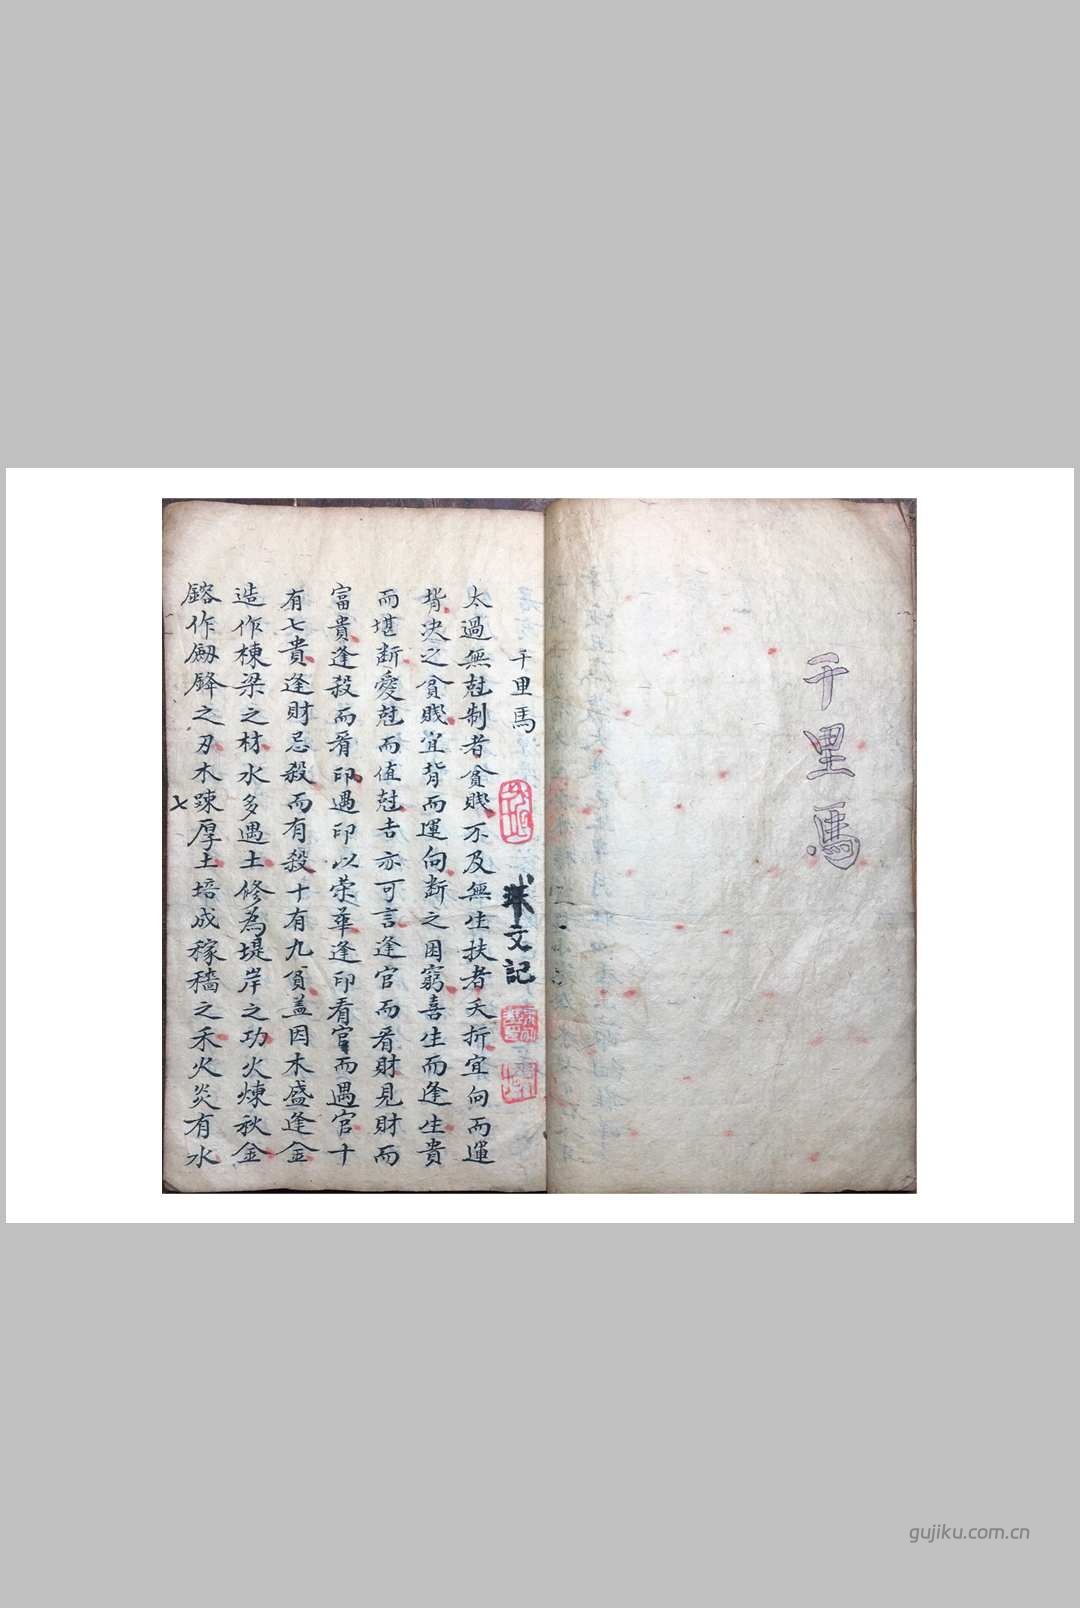 千里馬
千里馬
文記
太過無尅制者貧賤不及無生扶者夭折宜向而運
背决之貧賤宜背而運向断之困窮喜生而逢生貴
而堪断愛尅而值尅吉亦可言逢官而看財見財而
富貴逢殺而看印遇印以荣華逢印看官而遇官十
有七貴逢財忌殺而有殺十有九貧盖因木盛逢金
造作棟梁之材水多遇土修為堤岸之功火煉秋金
鎔作劒鋒之刃木踈厚土培成稼穡之禾火炎有水
七
gujiku.com.cn